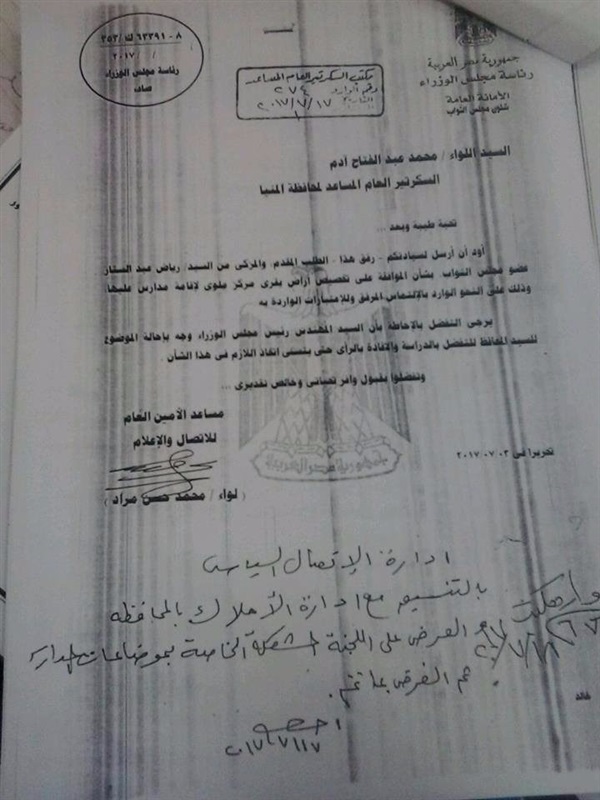 جمهورية مصر العربية
رئاسة مجلس الوزراء
الأمانة العامة
شئون مجلس النواب
٨ - ٦٣٣٩١ ك /٣٥٣
/ / ٢٠١٧
رئاسة مجلس الوزراء
صادر
مكتب السكرتير العام المساعد
رقم الوارد ٢٧٤
التاريخ ٢٠١٧/٧/١٧
السيد اللواء / محمد عبد الفتاح آدم
السكرتير العام المساعد لمحافظة المنيا
تحية طيبة وبعد ...
أود أن أرسل لسيادتكم - رفق هذا - الطلب المقدم والمزكى من السيد/ رياض عبد الستار
عضو مجلس النواب، بشأن الموافقة على تخصيص أراض بقرى مركز ملوى لإقامة مدارس عليها
وذلك على النحو الوارد بالإلتماس المرفق وللإعتبارات الواردة به
يرجى التفضل بالاحاطة بأن السيد المهندس رئيس مجلس الوزراء وجه بإحالة الموضوع
للسيد المحافظ للتفضل بالدراسة والافادة بالرأى حتى يتسنى اتخاذ اللازم فى هذا الشأن .
وتفضلوا بقبول وافر تحياتى وخالص تقديرى ...
مساعد الأمين العام
للاتصال والإعلام
جمهورية مصر العربية
تحريرا فى ٠٣-٠٧-٢٠١٧
( لواء / محمد حسن مراد )
ادارة الإتصال السياسى
بالتنسيق مع ادارة الأملاك بالمحافظه
العرض على اللجنة المشكلة الخاصة
ثم العرض بما تم .
٢٠١٧/٧/١٧
خالد